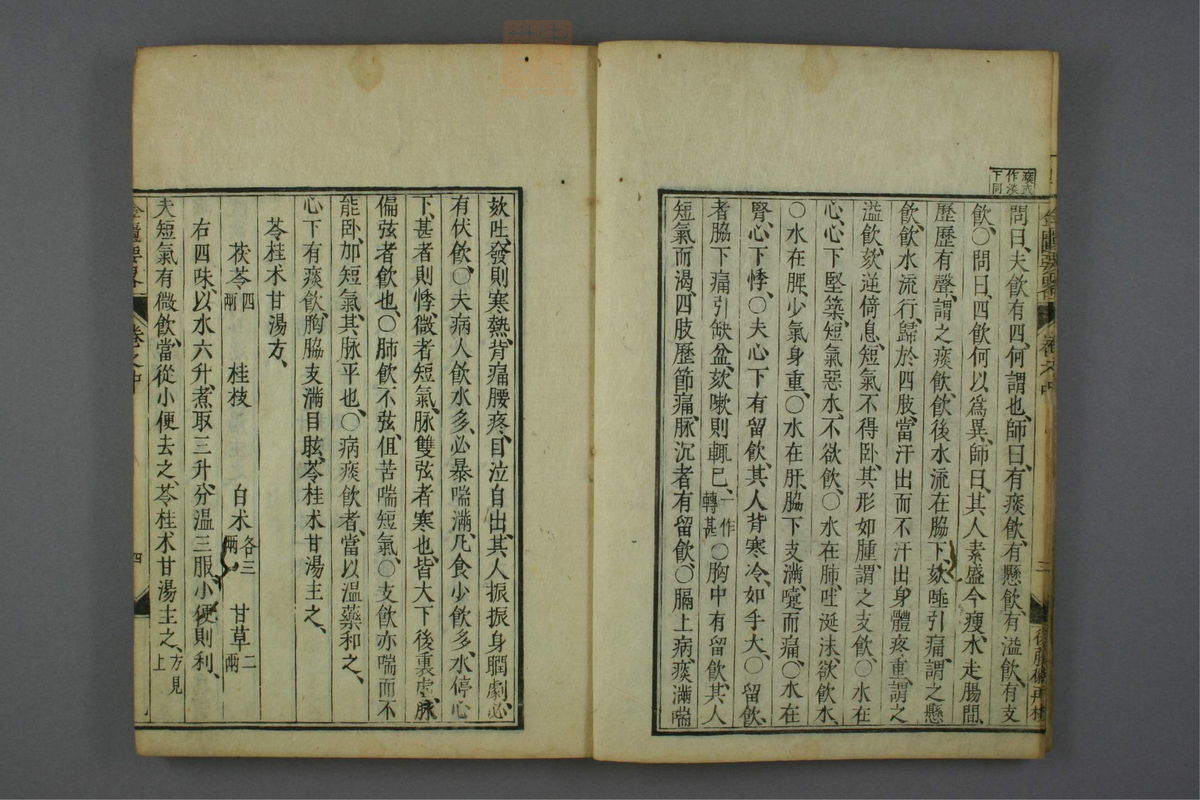 痰或
作淡
下同
問曰、夫飲有四、何謂也、師曰、有痰飲、有懸飲、有溢飲、有支
飲、○問曰、四飲何以爲異、師曰、其人素盛今瘦、水走腸間、
歷歷有聲、謂之痰飲、飲後水流在脇下、欬唾引痛、謂之懸
飲、飲水流行、歸於四肢、當汗出而不汗出、身體疼重、謂之
溢飲、欬逆倚息、短氣不得卧、其形如腫、謂之支飲、○水在
心、心下堅築、短氣、惡水、不欲飲、○水在肺、吐涎沫、欲飲水、
○水在脾、少氣身重、○水在肝、脇下支滿、嚏而痛、○水在
腎、心下悸、○夫心下有留飲、其人背寒冷、如手大、○留飲
者、脇下痛引缺盆、欬嗽則輒已、一作轉甚○胸中有留飲、其人
短氣而渴、四肢歷節痛、脉沉者、有留飲、○膈上病痰、滿喘
欬吐、發則寒熱、背痛腰疼、目泣自出、其人振振身瞤劇、必
有伏飲、○夫病人飲水多、必暴喘滿、凡食少飲多、水停心
下、甚者則悸、微者短氣、脉雙弦者寒也、皆大下後裏虛、脉
偏弦者飲也、○肺飲不弦、但苦喘短氣、○支飲亦喘而不
能卧、加短氣、其脉平也、○病痰飲者、當以溫藥和之、
心下有痰飲、胸脇支滿、目眩、苓桂朮甘湯主之、
苓桂朮甘湯方、
茯苓四兩 桂枝 白朮各三兩 甘草二兩
右四味、以水六升、煮取三升、分溫三服、小便則利、
夫短氣有微飲、當從小便去之、苓桂朮甘湯主之、方見上
金匱要畧 卷之中 四